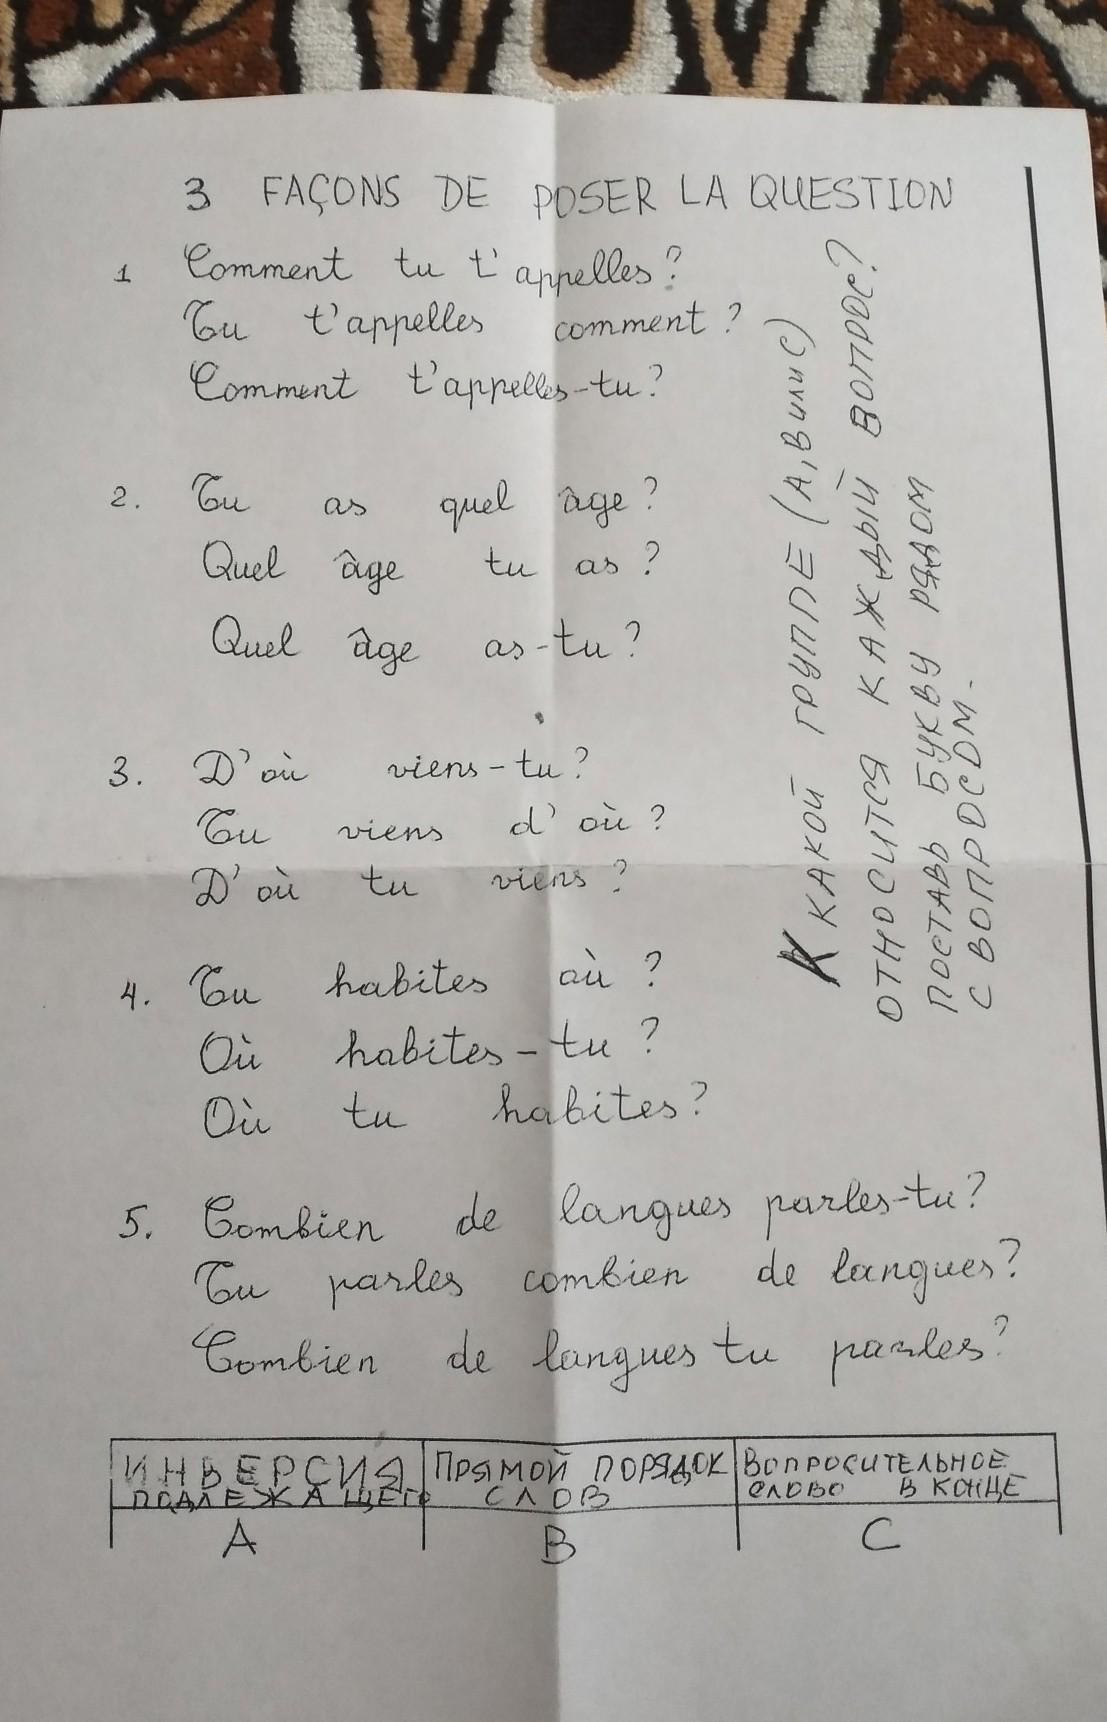 3 FAÇONS DE POSER LA QUESTION
1 Comment tu t'appelles?
Tu t'appelles comment?
Comment t'appelles-tu?
2. Tu as quel âge?
Quel âge tu as?
Quel âge as-tu?
3. D'où viens-tu?
Tu viens d'où?
D'où tu viens?
4. Tu habites où?
Où habites-tu?
Où tu habites?
5. Combien de langues parles-tu?
Tu parles combien de langues?
Combien de langues tu parles?
К КАКОЙ ГРУППЕ (А, В или С)
ОТНОСИТСЯ КАЖДЫЙ ВОПРОС?
ПОСТАВЬ БУКВУ РЯДОМ
С ВОПРОСОМ.
ИНВЕРСИЯ
ПОДЛЕЖАЩЕГО
ПРЯМОЙ ПОРЯДОК
СЛОВ
ВОПРОСИТЕЛЬНОЕ
СЛОВО В КОНЦЕ
A B C